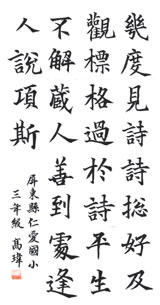 幾度見詩詩總好及
觀標格過於詩平生
不解藏人善到處逢
人說項斯
屏東縣仁愛國小
三年級 高瑋